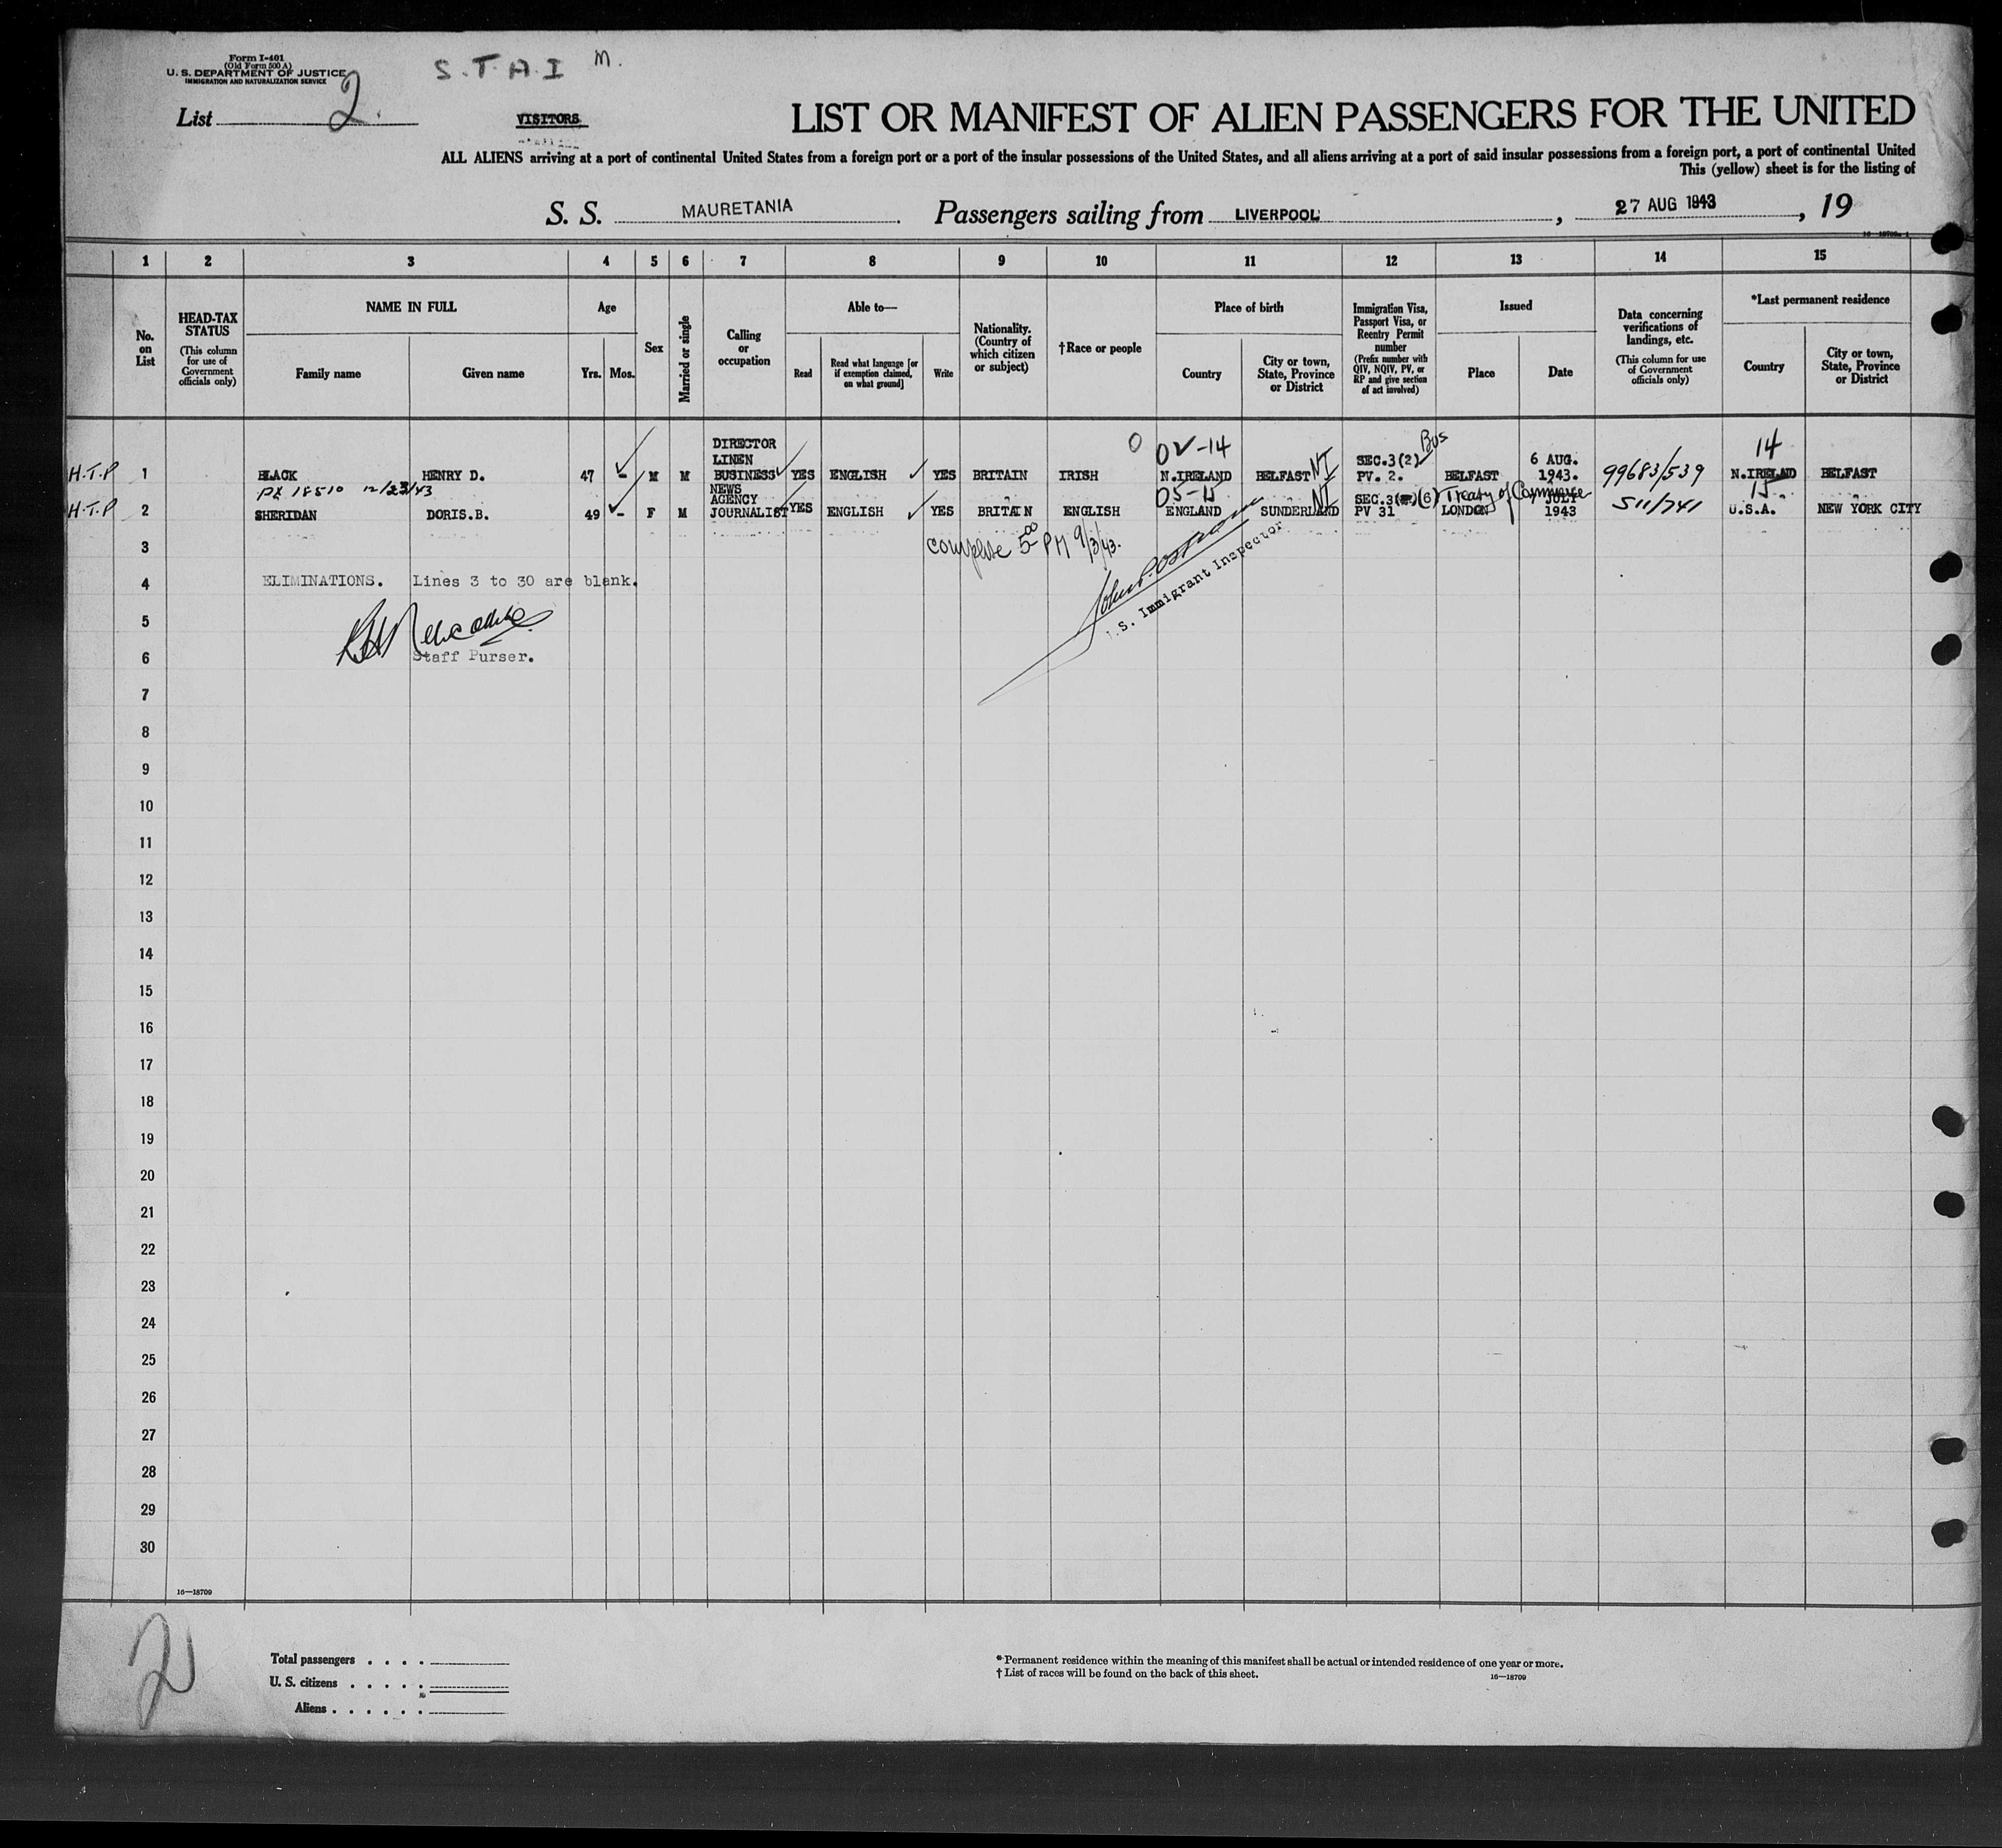 Form I-401
(Old Form 500 A)
U. S. DEPARTMENT OF JUSTICE
IMMIGRATION AND NATURALIZATION SERVICE
S.T.A.I M.
List 2.
VISITORS
LIST OR MANIFEST OF ALIEN PASSENGERS FOR THE UNITED
ALL ALIENS arriving at a port of continental United States from a foreign port or a port of the insular possessions of the United States, and all aliens arriving at a port of said insular possessions from a foreign port, a port of continental United
This (yellow) sheet is for the listing of
S. S. MAURETANIA Passengers sailing from LIVERPOOL, 27 AUG 1943, 19
1 2 3 4 5 6 7 8 9 10 11 12 13 14 15
No. on List
HEAD-TAX STATUS
(This column for use of Government officials only)
NAME IN FULL
Family name
Given name
Age
Yrs. Mos.
Sex
Married or single
Calling or occupation
Able to—
Read
Read what language [or if exemption claimed, on what ground]
Write
Nationality. (Country of which citizen or subject)
†Race or people
Place of birth
Country
City or town, State, Province or District
Immigration Visa, Passport Visa, or Reentry Permit number
(Prefix number with QIV, NQIV, PV, or RP and give section of act involved)
Issued
Place
Date
Data concerning verifications of landings, etc.
(This column for use of Government officials only)
*Last permanent residence
Country
City or town, State, Province or District
H.T.P 1 BLACK HENRY D. 47 - M M DIRECTOR LINEN BUSINESS YES ENGLISH YES BRITAIN IRISH 0 0V-14 N.IRELAND BELFAST NI SEC.3(2) Bus PV. 2. BELFAST 6 AUG. 1943. 99683/539 14 N.IRELAD BELFAST
PI 18510 12/23/43
H.T.P 2 SHERIDAN DORIS.B. 49 - F M NEWS AGENCY JOURNALIST YES ENGLISH YES BRITAIN ENGLISH ENGLAND SUNDERLAND NI SEC.3 (6) Treaty of Commerce PV 31 LONDON 7 JULY 1943 511/741 15 U.S.A. NEW YORK CITY
3
complete 5 00 PM 9/3/43.
4 ELIMINATIONS. Lines 3 to 30 are blank.
U.S. Immigrant Inspector
5
6 Staff Purser.
7
8
9
10
11
12
13
14
15
16
17
18
19
20
21
22
23
24
25
26
27
28
29
30
16—18709
2
Total passengers . . . .
U. S. citizens . . . . .
Aliens . . . . . .
* Permanent residence within the meaning of this manifest shall be actual or intended residence of one year or more.
† List of races will be found on the back of this sheet.
16—18709